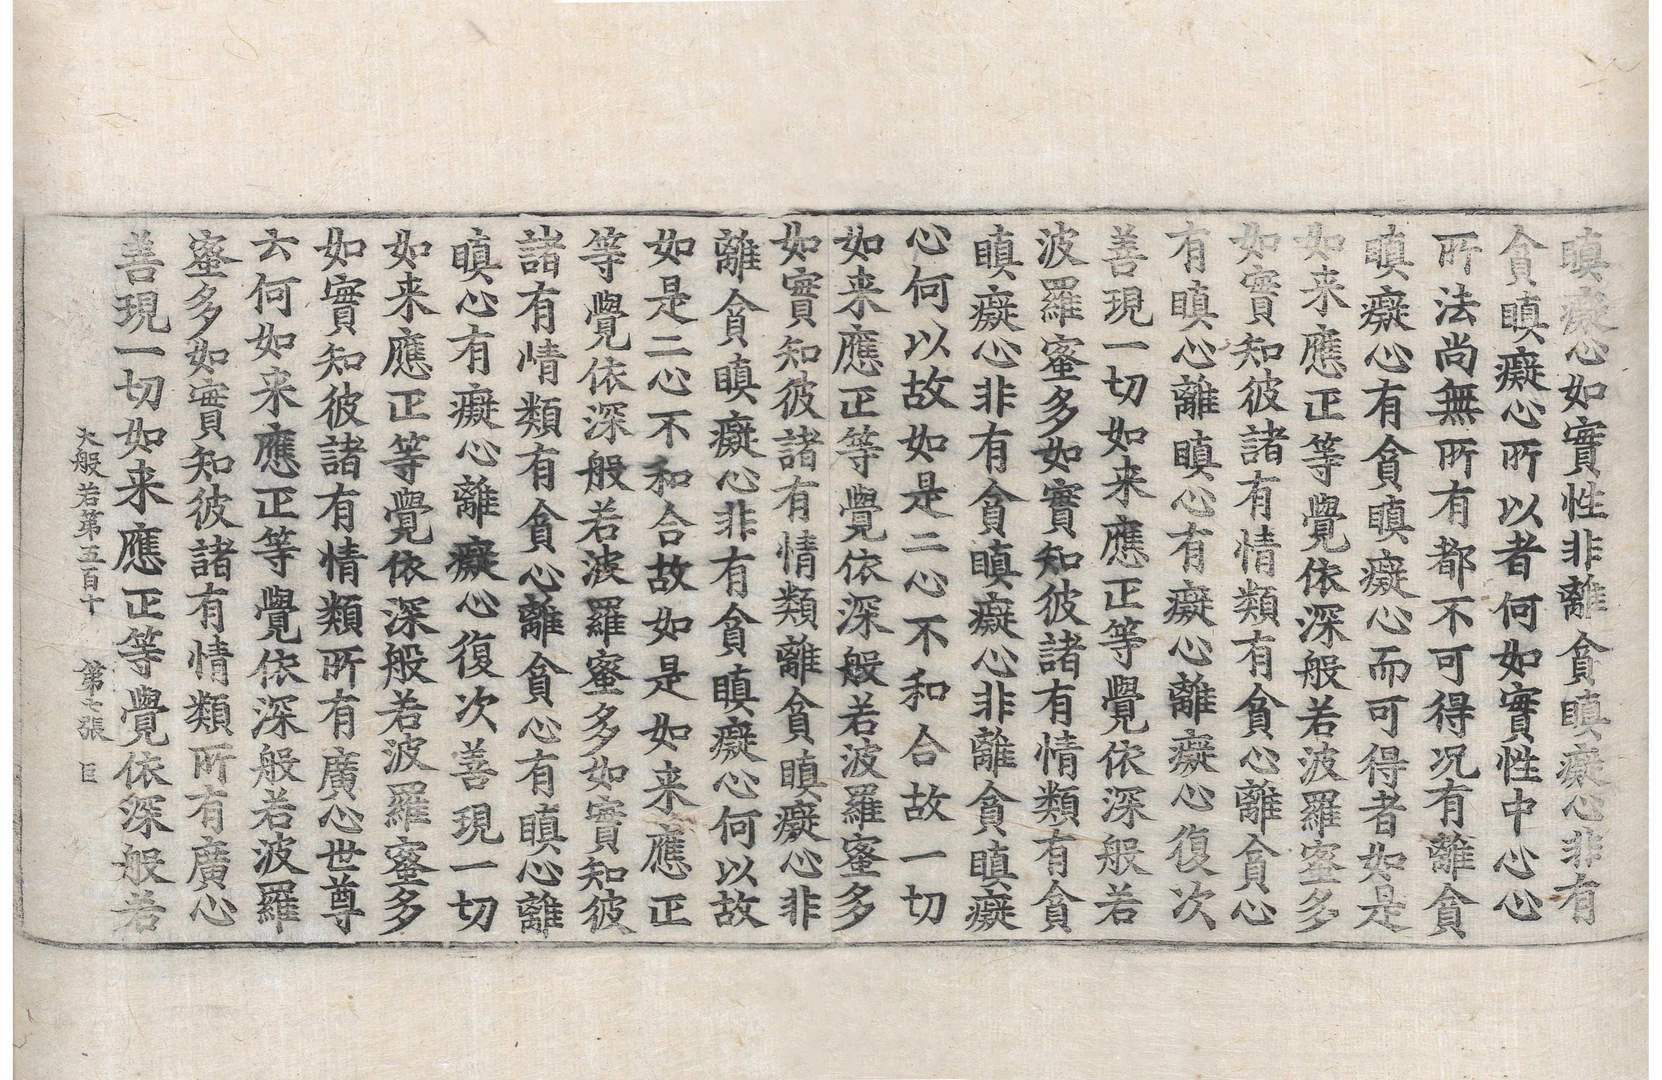 瞋癡心如實性非離貪瞋癡心非有
貪瞋癡心所以者何如實性中心心
所法尚無所有都不可得況有離貪
瞋癡心有貪瞋癡心而可得者如是
如来應正等覺依深般若波羅蜜多
如實知彼諸有情類有貪心離貪心
有瞋心離瞋心有癡心離癡心復次
善現一切如来應正等覺依深般若
波羅蜜多如實知彼諸有情類有貪
瞋癡心非有貪瞋癡心非離貪瞋癡
心何以故如是二心不和合故一切
如来應正等覺依深般若波羅蜜多
如實知彼諸有情類離貪瞋癡心非
離貪瞋癡心非有貪瞋癡心何以故
如是二心不和合故如是如来應正
等覺依深般若波羅蜜多如實知彼
諸有情類有貪心離貪心有瞋心離
瞋心有癡心離癡心復次善現一切
如来應正等覺依深般若波羅蜜多
如實知彼諸有情類所有廣心世尊
云何如来應正等覺依深般若波羅
蜜多如實知彼諸有情類所有廣心
善現一切如来應正等覺依深般若
大般若第五百十 第七張 巨